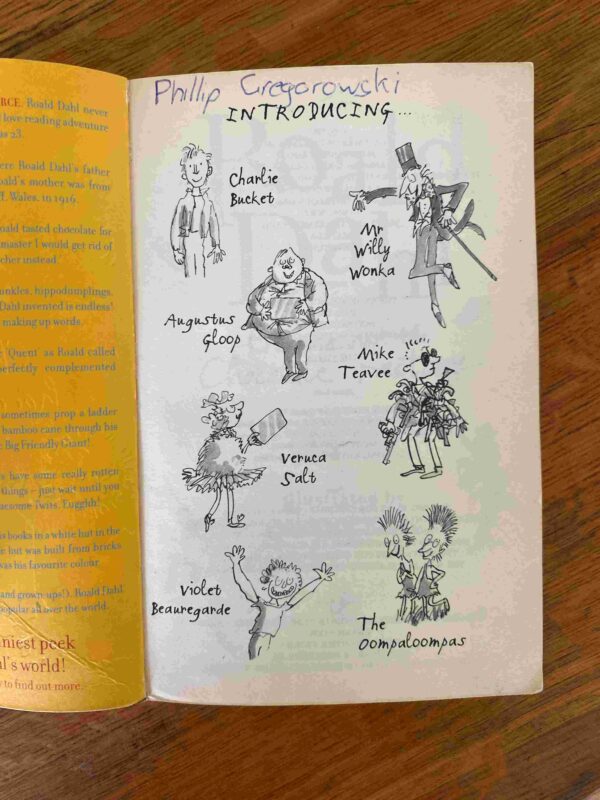 RCE. Roald Dahl never
love reading adventure
as 23.
ere Roald Dahl's father
oald's mother was from
ff, Wales, in 1916.
oald tasted chocolate for
master I would get rid of
cher instead.'
unkles, hippodumplings,
Dahl invented is endless!
making up words.
'Quent' as Roald called
perfectly complemented
sometimes prop a ladder
bamboo cane through his
e Big Friendly Giant!
s have some really rotten
things – just wait until you
uesome Twits. Eugghh!
is books in a white hut in the
e hut was built from bricks
was his favourite colour.
and grown-ups!). Roald Dahl
popular all over the world.
niest peek
hl's world!
to find out more.
Phillip Gregorowski
INTRODUCING...
Charlie
Bucket
Mr
Willy
Wonka
Augustus
Gloop
Mike
Teavee
Veruca
Salt
Violet
Beauregarde
The
Oompaloompas